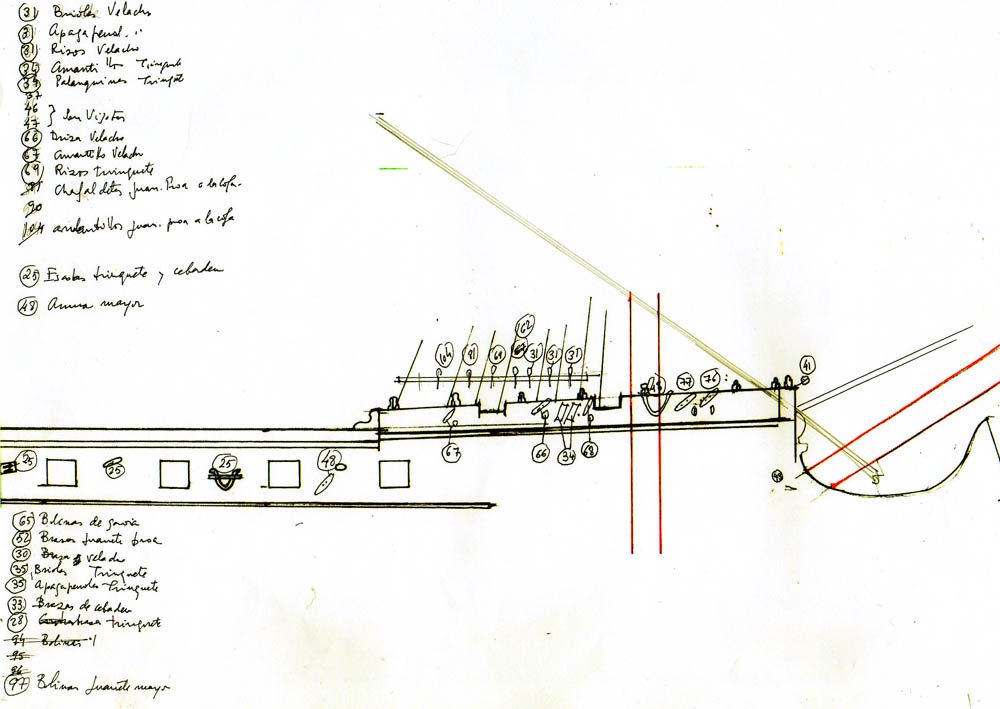 31 Briolas Velacho
31 Apagapenol. "
31 Rizos Velacho
34 Amantillos Trinquete
34 Palanquines Trinqte
37
46
47 } Son Vigotas
66 Driza Velacho
67 Amantillo Velacho
69 Rizos trinquete
81 Chafaldetes juan. Proa a la cofa.
90
104 amantillos juan. proa a la cofa
25 Escotas trinquete y cebadera
48 Amura mayor
162
104 81 69 31 31 31
41
48 77 76
67 66 34 68
25 25 25 48
65 Bolinas de gavia
52 Brazos juanete proa
30 velacho
35 Briolas Trinquete
35 Apagapenoles Trinquete
33 Brazas de cebadera
28 trinquete
94 Bolinas
95
96
97 Bolinas juanete mayor